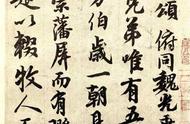 頌俯同魏光
兄弟唯有五
方伯歲一朝見
崇藩屏而有睽
是以輟牧人